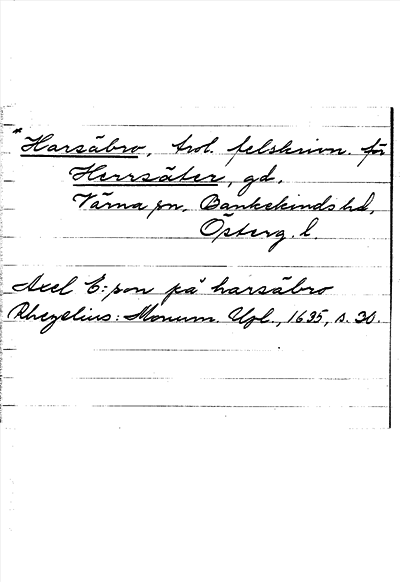 *Harsäbro, trol. felskrivn. för
Herrsäter, gd,
Värna sn, Bankekinds hd,
Österg. l.
Axel E:son på harsäbro
Rhezelius: Monum. Upl., 1635, s. 30.